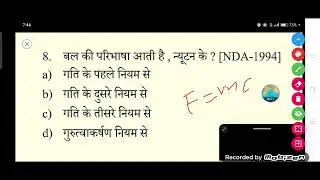 7:46
8. बल की परिभाषा आती है , न्यूटन के ? [NDA-1994]
a) गति के पहले नियम से
b) गति के दुसरे नियम से
c) गति के तीसरे नियम से
d) गुरुत्वाकर्षण नियम से
F=mc
Recorded by